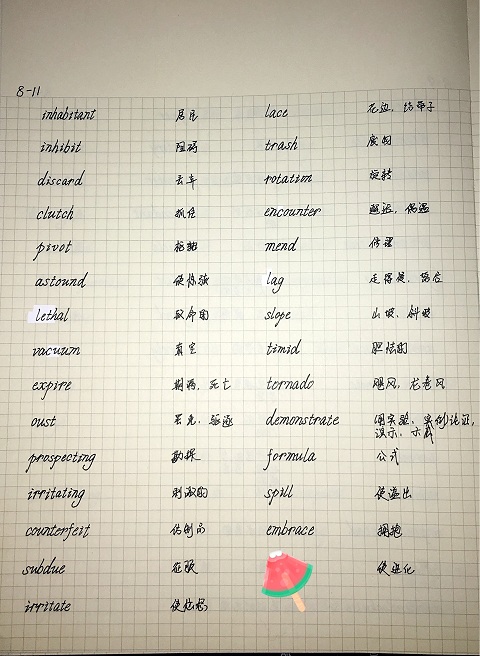 8-11
inhabitant 居民 lace 花边,
inhibit 阻碍 trash 废物
discard rotation 旋转
clutch 抓住 encounter 遭遇, 偶遇
pivot 枢轴 mend 修理
astound 使惊骇 lag 走得慢, 落后
lethal 致命的 slope 山坡, 斜坡
vacuum 真空 timid 胆怯的
expire 期满, 死亡 tornado 飓风, 龙卷风
oust 罢免, 驱逐 demonstrate 用实验, 实例论证,
演示, 示威
prospecting 勘探 formula 公式
irritating 刺激的 spill 使溢出
counterfeit 仿制品 embrace 拥抱
subdue 征服 使进化
irritate 使恼怒